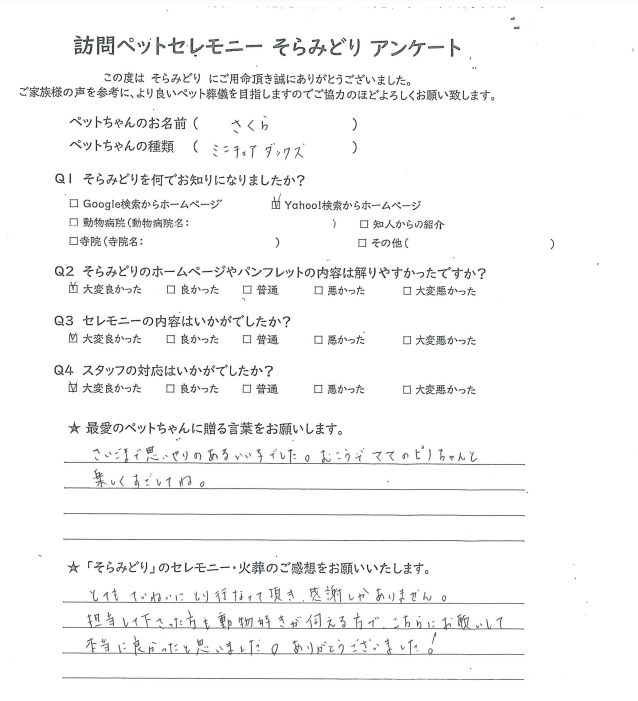 訪問ペットセレモニー そらみどり アンケート
この度は そらみどり にご用命頂き誠にありがとうございました。
ご家族様の声を参考に、より良いペット葬儀を目指しますのでご協力のほどよろしくお願い致します。
ペットちゃんのお名前 ( さくら )
ペットちゃんの種類 ( ミニチュア ダックス )
Q1 そらみどりを何でお知りになりましたか?
□ Google検索からホームページ ☑ Yahoo!検索からホームページ
□ 動物病院(動物病院名: ) □ 知人からの紹介
□寺院(寺院名: ) □ その他( )
Q2 そらみどりのホームページやパンフレットの内容は解りやすかったですか?
☑ 大変良かった □ 良かった □ 普通 □ 悪かった □ 大変悪かった
Q3 セレモニーの内容はいかがでしたか?
☑ 大変良かった □ 良かった □ 普通 □ 悪かった □ 大変悪かった
Q4 スタッフの対応はいかがでしたか?
☑ 大変良かった □ 良かった □ 普通 □ 悪かった □ 大変悪かった
★ 最愛のペットちゃんに贈る言葉をお願いします。
さいごまで思いやりのあるいい子でした。むこうでててのピノちゃんと
楽しくすごしてね。
★「そらみどり」のセレモニー・火葬のご感想をお願いいたします。
とてもていねいにとり行なって頂き、感謝しかありません。
担当して下さった方も動物好きが伺える方で、こちらにお願いして
本当に良かったと思いました。ありがとうございました!